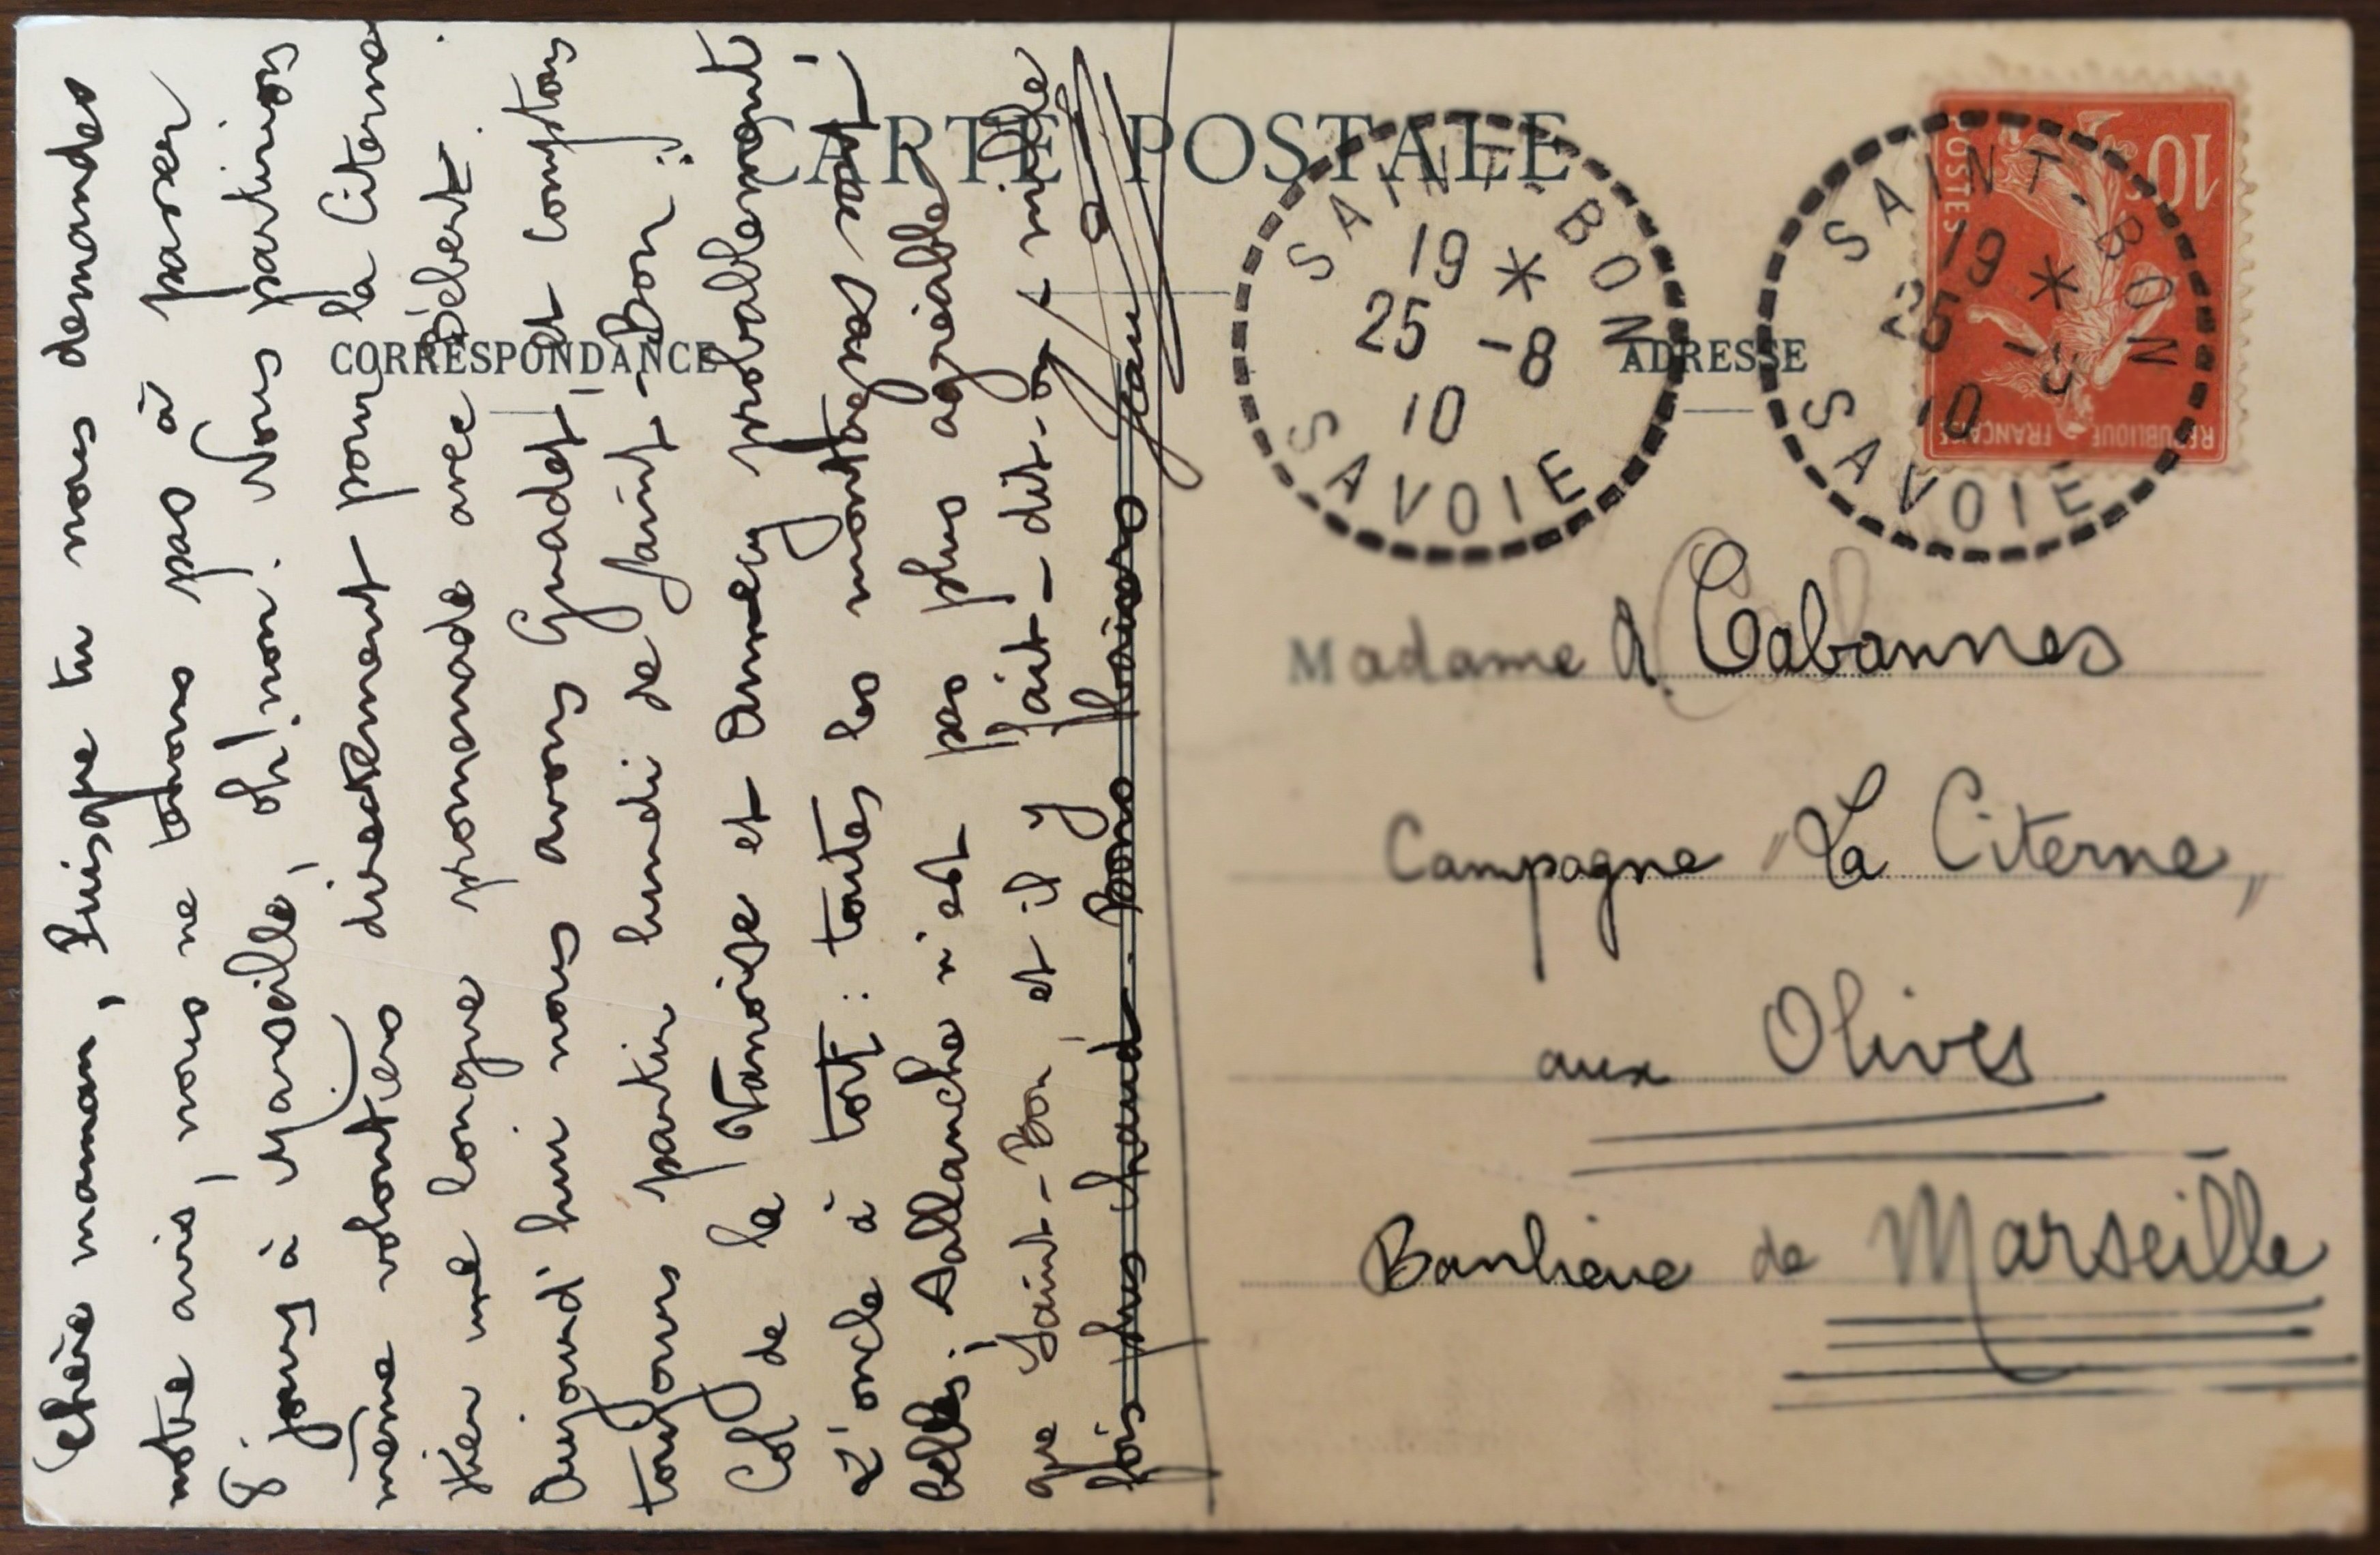 CARTE POSTALE
CORRESPONDANCE
ADRESSE
Chère maman, Puisque tu nous demandes
notre avis, nous ne tenons pas à passer
8 jours à Marseille, oh! non. Nous partirions
même volontiers directement pour la Citerne
Hier une longue promenade avec Bébert.
Aujourd'hui nous avons Guadet, et comptons
toujours partir lundi de Saint-Bon;
Col de la Vanoise et Annecy probablement
L'oncle à tort: toutes les montagnes sont
belles; Sallanche n'est pas plus agréable
que Saint-Bon, et il y fait-dit-on mille
fois plus chaud. Bons baisers Jean
SAINT-BON
19 *
25 -8
10
SAVOIE
SAINT-BON
19 *
25 -8
10
SAVOIE
10c
POSTES
REPUBLIQUE FRANCAISE
Madame A. Cabannes
Campagne "La Citerne"
aux Olives
Banlieue de Marseille